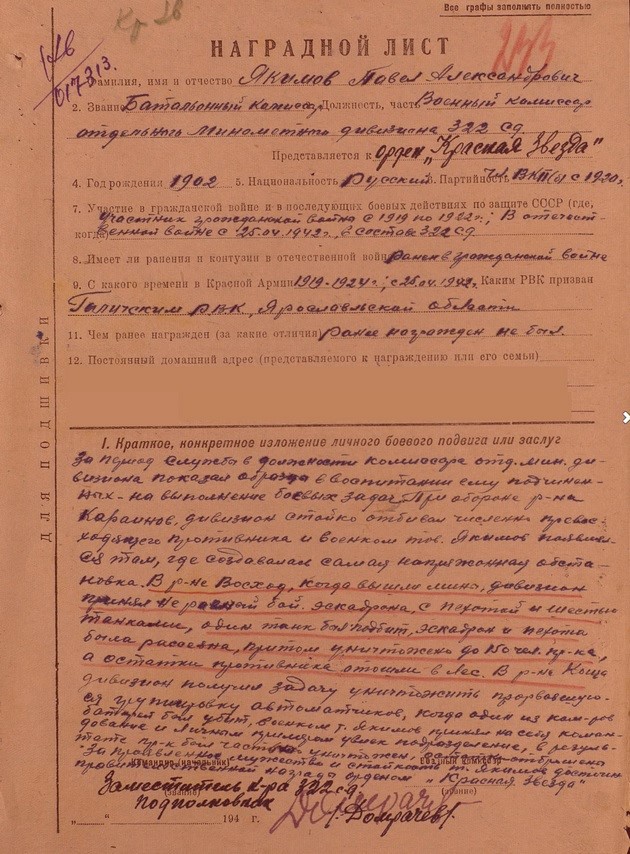 Все графы заполнять полностью
Кр 26
017313.
НАГРАДНОЙ ЛИСТ
Фамилия, имя и отчество Якимов Павел Александрович
2. Звание Батальонный комиссар Должность, часть Военный комиссар
отдельного минометного дивизиона 322 сд.
Представляется к орден „Красная Звезда"
4. Год рождения 1902 5. Национальность Русский 6. Партийность чл. ВКП(б) с 1920г.
7. Участие в гражданской войне и в последующих боевых действиях по защите СССР (где,
когда) участник гражданской войны с 1919 по 1922г.; В отечест-
венной войне с 25.04.1942г., в составе 322 сд
8. Имеет ли ранения и контузии в отечественной войне Ранен в гражданской войне
9. С какого времени в Красной Армии 1919-1924г; с 25.04.1942. Каким РВК призван
РВК, Ярославской области
11. Чем ранее награжден (за какие отличия) Ранее награжден не был.
12. Постоянный домашний адрес (представляемого к награждению или его семьи)
ДЛЯ ПОДШИВКИ
I. Краткое, конкретное изложение личного боевого подвига или заслуг
За период службы в должности комиссара отд. мин. ди-
визиона показал образцы в воспитании ему подчинен-
ных - на выполнение боевых задач. При обороне р-на
дивизион стойко отбивал численно превос-
ходящего противника и военком тов. Якимов появлял-
ся там, где создавалась самая напряженная обста-
новка. В р-не Восход, когда вышли мины, дивизион
принял не равный бой. эскадрона, с пехотой и шестью
танками, один танк был подбит, эскадрон и пехота
была рассеяна, притом уничтожено до чел. пр-ка,
а остатки противника отошли в лес. В р-не
дивизион получил задачу уничтожить прорвавшую-
ся группировку автоматчиков, когда один из ком-ров
батарей был убит, военком т. Якимов принял на себя коман-
дование и личным примером увлек подразделение, в резуль-
тате пр-к был частью уничтожен, остатки отброшены
За проявленное мужество и стойкость т. Якимов достоин
правительственной награды орденом „Красная Звезда"
Командир (начальник)
Военный комиссар
Заместитель к-ра 322 сд.
(звание)
(звание)
подполковник
/Домрачев/.
„ " 194 г.